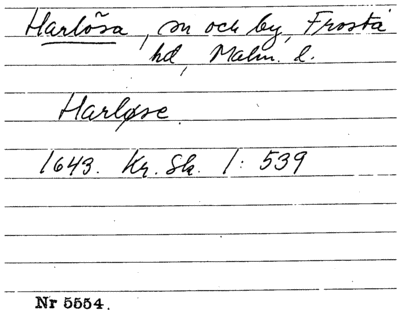 Harlösa, sn och by, Frosta
hd, Malm. l.
Harløse.
1643. Kr. Sk. 1: 539
Nr 5554.